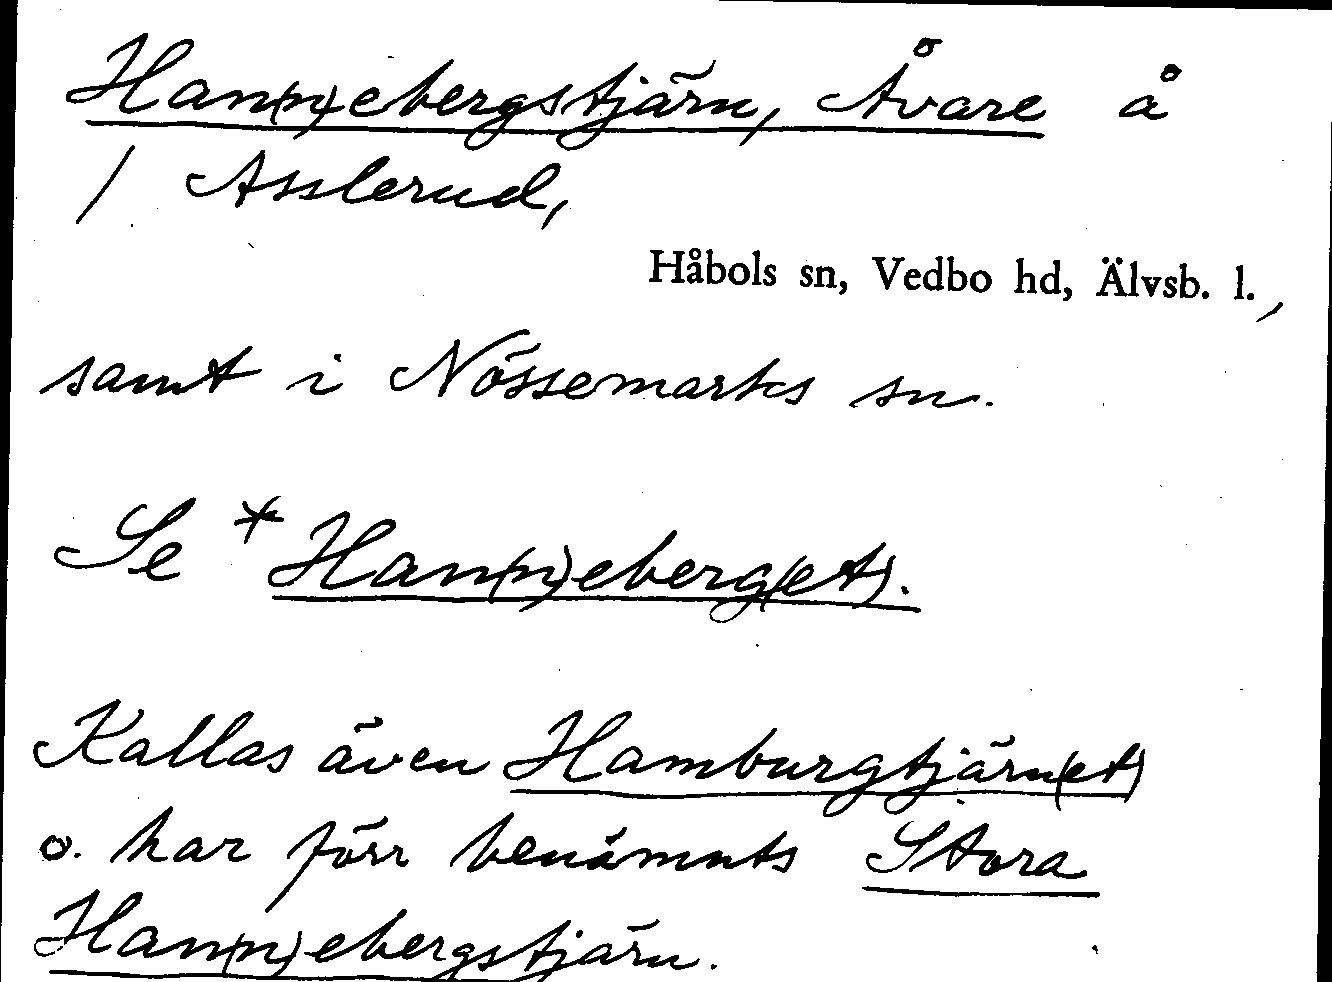 Han(n)ebergstjärn, Åvare å
/ Asslerud,
Håbols sn, Vedbo hd, Älvsb. l.,
samt i Nössemarks sn.
Se *Han(n)eberg(et).
Kallas även Hamburgtjärn(et)
o. har förr benämnts Stora
Han(n)ebergstjärn.